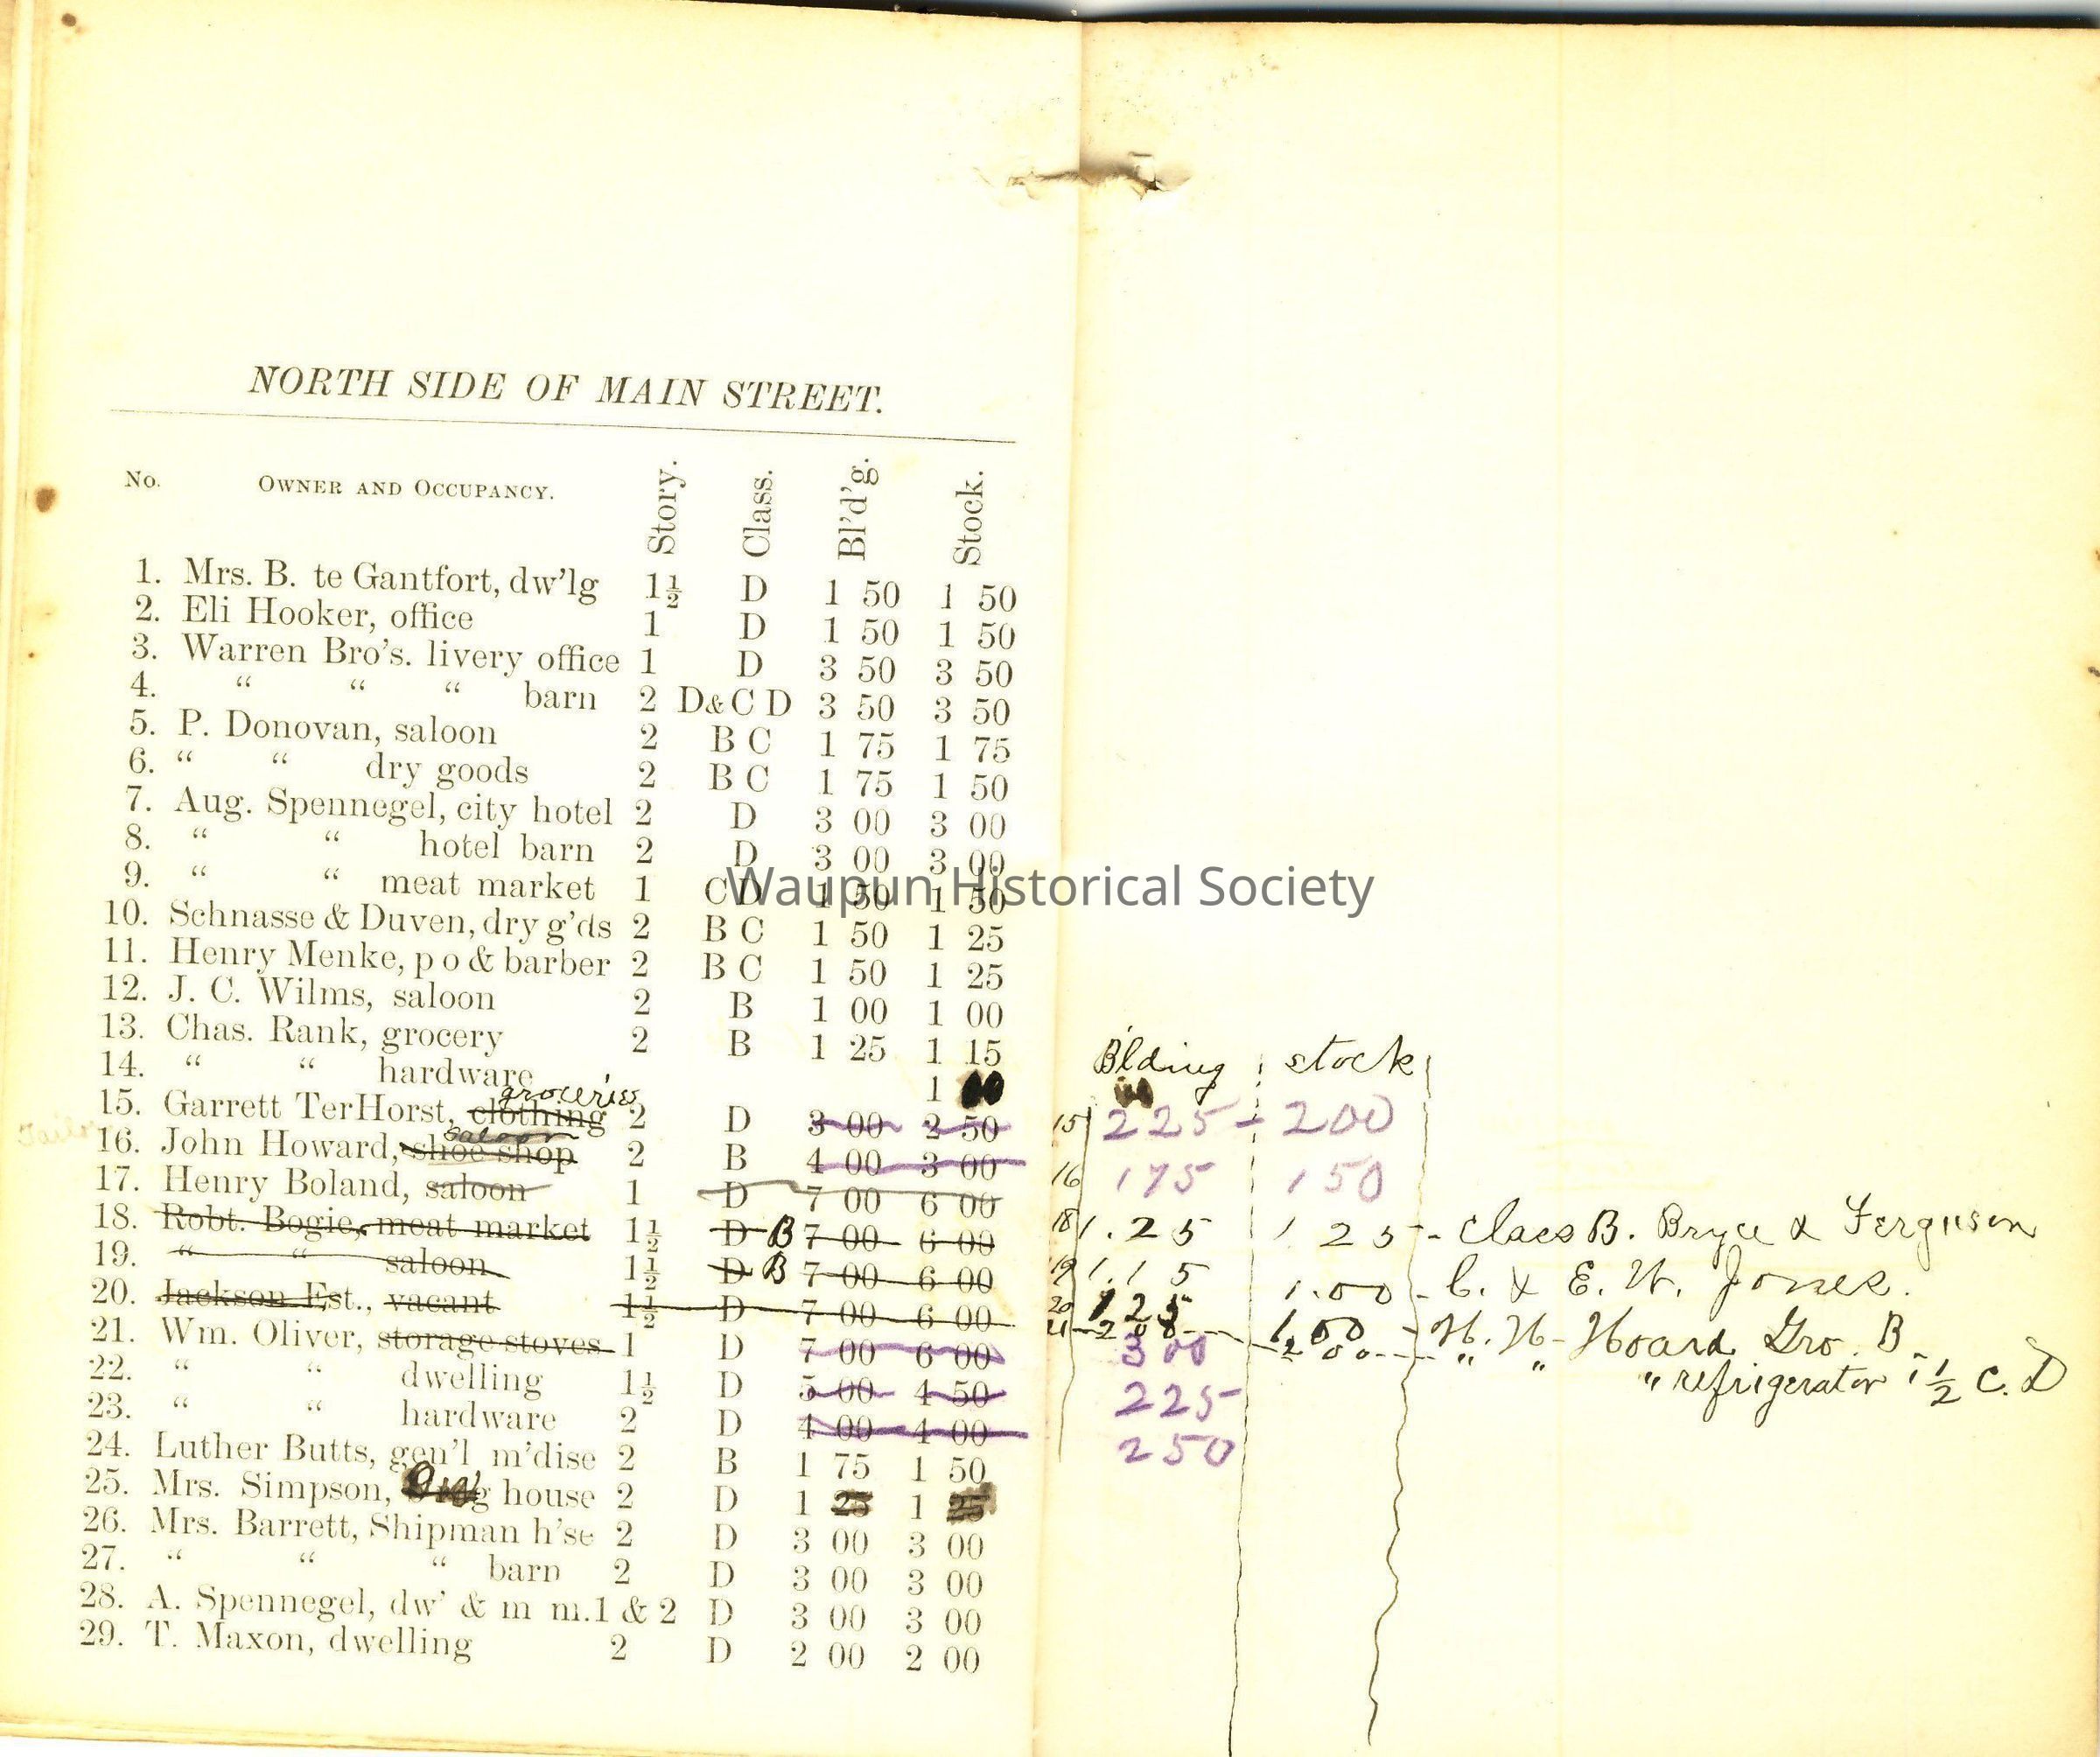 NORTH SIDE OF MAIN STREET.
No. OWNER AND OCCUPANCY. Story. Class. Bl'd'g. Stock.
1. Mrs. B. te Gantfort, dw'lg 1½ D 1 50 1 50
2. Eli Hooker, office 1 D 1 50 1 50
3. Warren Bro's. livery office 1 D 3 50 3 50
4. “ “ “ barn 2 D&C D 3 50 3 50
5. P. Donovan, saloon 2 B C 1 75 1 75
6. “ “ dry goods 2 B C 1 75 1 50
7. Aug. Spennegel, city hotel 2 D 3 00 3 00
8. “ “ hotel barn 2 D 3 00 3 00
9. “ “ meat market 1 C D 1 50 1 50
Waupun Historical Society
10. Schnasse & Duven, dry g'ds 2 B C 1 50 1 25
11. Henry Menke, p o & barber 2 B C 1 50 1 25
12. J. C. Wilms, saloon 2 B 1 00 1 00
13. Chas. Rank, grocery 2 B 1 25 1 15
14. “ “ hardware 1
groceries
15. Garrett TerHorst, clothing 2 D 3 00 2 50
saloon
16. John Howard, shoe shop 2 B 4 00 3 00
17. Henry Boland, saloon 1 D 7 00 6 00
18. Robt. Bogie, meat market 1½ D B 7 00 6 00
19. “ “ saloon 1½ D B 7 00 6 00
20. Jackson Est., vacant 1½ D 7 00 6 00
21. Wm. Oliver, storage stoves 1 D 7 00 6 00
22. “ “ dwelling 1½ D 5 00 4 50
23. “ “ hardware 2 D 4 00 4 00
24. Luther Butts, gen'l m'dise 2 B 1 75 1 50
25. Mrs. Simpson, house 2 D 1 25 1 25
26. Mrs. Barrett, Shipman h'se 2 D 3 00 3 00
27. “ “ “ barn 2 D 3 00 3 00
28. A. Spennegel, dw' & m m. 1 & 2 D 3 00 3 00
29. T. Maxon, dwelling 2 D 2 00 2 00
Blding stock
15 225 - 200
16 175 150
18 1.25 1 25 - Class B. Bryce & Ferguson
19 1.15 1.00 - C. & E. W. Jones.
20 1 25 1.00 - W. W. Hoard Gro. B
21 2 00 2 00 " " " refrigerator 1½ C. D
300
225
250